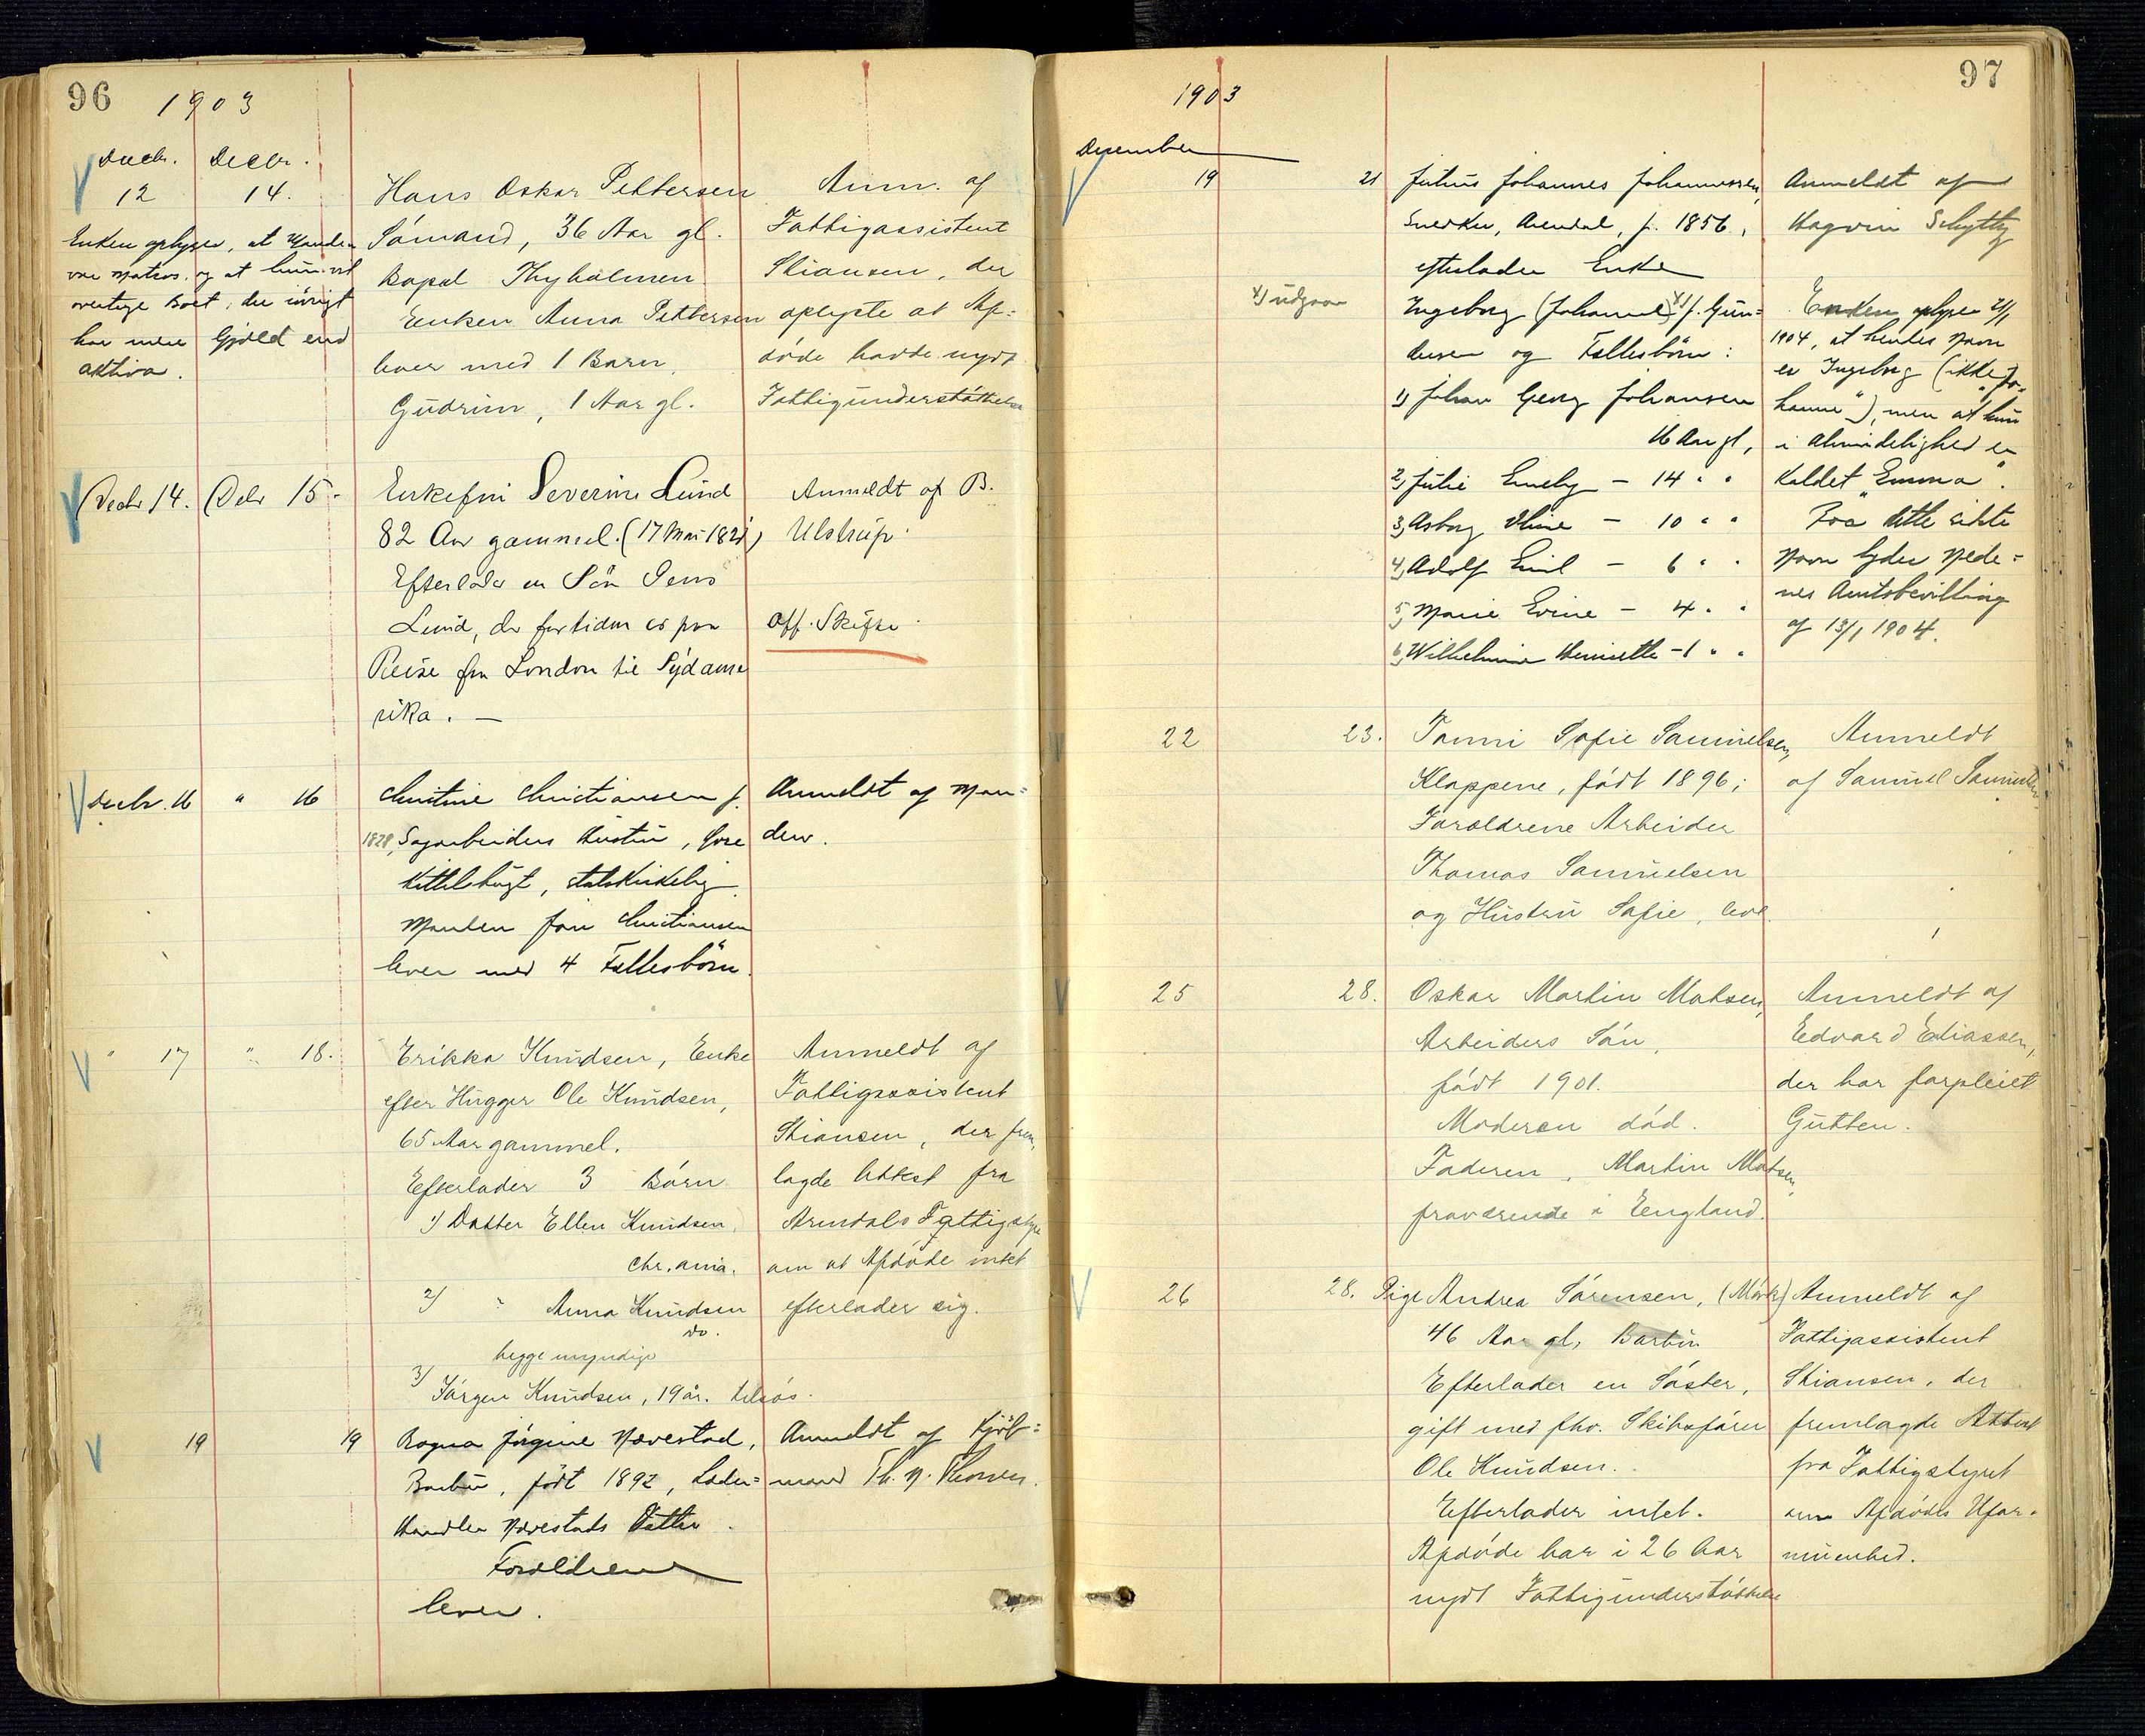 96
1903
Decbr. Decbr.
12 14.
Enken oplyser, at Manden
var Matros, og at hun vil
overtage Boet, der iøvrigt
har mere Gjæld end
aktiva.
Hans Oskar Pettersen
Sømand, 36 Aar gl.
Bopæl Thyholmen
Enken Anna Pettersen
lever med 1 Barn,
Gudrun, 1 Aar gl.
Anm. af
Fattigassistent
Stiansen, der
oplyste at Af=
døde havde nydt
Fattigunderstøttelse
Decbr 14. Debr 15.
Enkefru Severine Lund
82 Aar gammel. (17 Mai 1821)
Efterlader en Søn Jens
Lund, der for tiden er paa
Reise fra London til Sydame
rika. —
Anmeldt af B.
Ulstrup.
Off. Skifte.
Decbr. 16 " 16
Christine Christiansen f.
1828, Sagarbeiders Hustru,
Kittelsbugt, statskirkelig
Manden Christiansen
lever med 4 Fællesbørn.
Anmeldt af Man=
den.
" 17 " 18.
Erikka Knudsen, Enke
efter Hugger Ole Knudsen,
65 Aar gammel.
Efterlader 3 Børn
1) Datter Ellen Knudsen,
Chr.ania.
2) " Anna Knudsen
do.
begge myndige
3) Jørgen Knudsen, 19 år. tilsøs.
Anmeldt af
Fattigassistent
Stiansen, der frem
lagde Attest fra
Arendals Fattigstyre
om at Afdøde intet
efterlader sig.
19 19
Ragna Jørgine Næverstad,
Barbu, født 1892,
Handler Næverstads Datter.
Forældrene
lever.
Anmeldt af Kjøb=
mand Th. N. Thomsen.
97
1903
December
19 21
Julius Johannes Johannessen,
Snedker, Arendal, f. 1856,
efterlader Enke
x) udgaar
Ingeborg (Johanne) x) f. Gun=
dersen og Fællesbørn:
1) Johan Georg Johansen
16 Aar gl,
2) Julie Emely - 14 " "
3) Asborg Oline - 10 " "
4) Adolf Emil - 6 " "
5) Marie Evine - 4 " "
6) Wilhelmine Henriette - 1 " "
Anmeldt af
Hagvin Schytty
Enken oplyser 21/1
1904, at hendes Navn
er Ingeborg (ikke "Jo-
hanne"), men at hun
i Almindelighed er
kaldet "Emma".
Paa dette sidste
Navn lyder Nede=
nes Amtsbevilling
af 13/1 1904.
22 23.
Tanni Sofie Samuelsen,
Kloppene, født 1896;
Forældrene Arbeider
Thomas Samuelsen
og Hustru Sofie, leve.
Anmeldt
af Samuel Samuelsen
25 28.
Oskar Martin Matsen,
Arbeiders Søn,
født 1901.
Moderen død.
Faderen, Martin Matsen,
fraværende i England.
Anmeldt af
Edvard Eliassen,
der har forpleiet
Gutten.
26 28.
Pige Andrea Sørensen, (Mørk)
46 Aar gl, Barbu
Efterlader en Søster,
gift med fhv. Skibsfører
Ole Knudsen.
Efterlader intet.
Afdøde har i 26 Aar
nydt Fattigunderstøttelse
Anmeldt af
Fattigassistent
Stiansen, der
fremlagde Attest
fra Fattigstyret
om Afdødes Ufor-
muenhed.